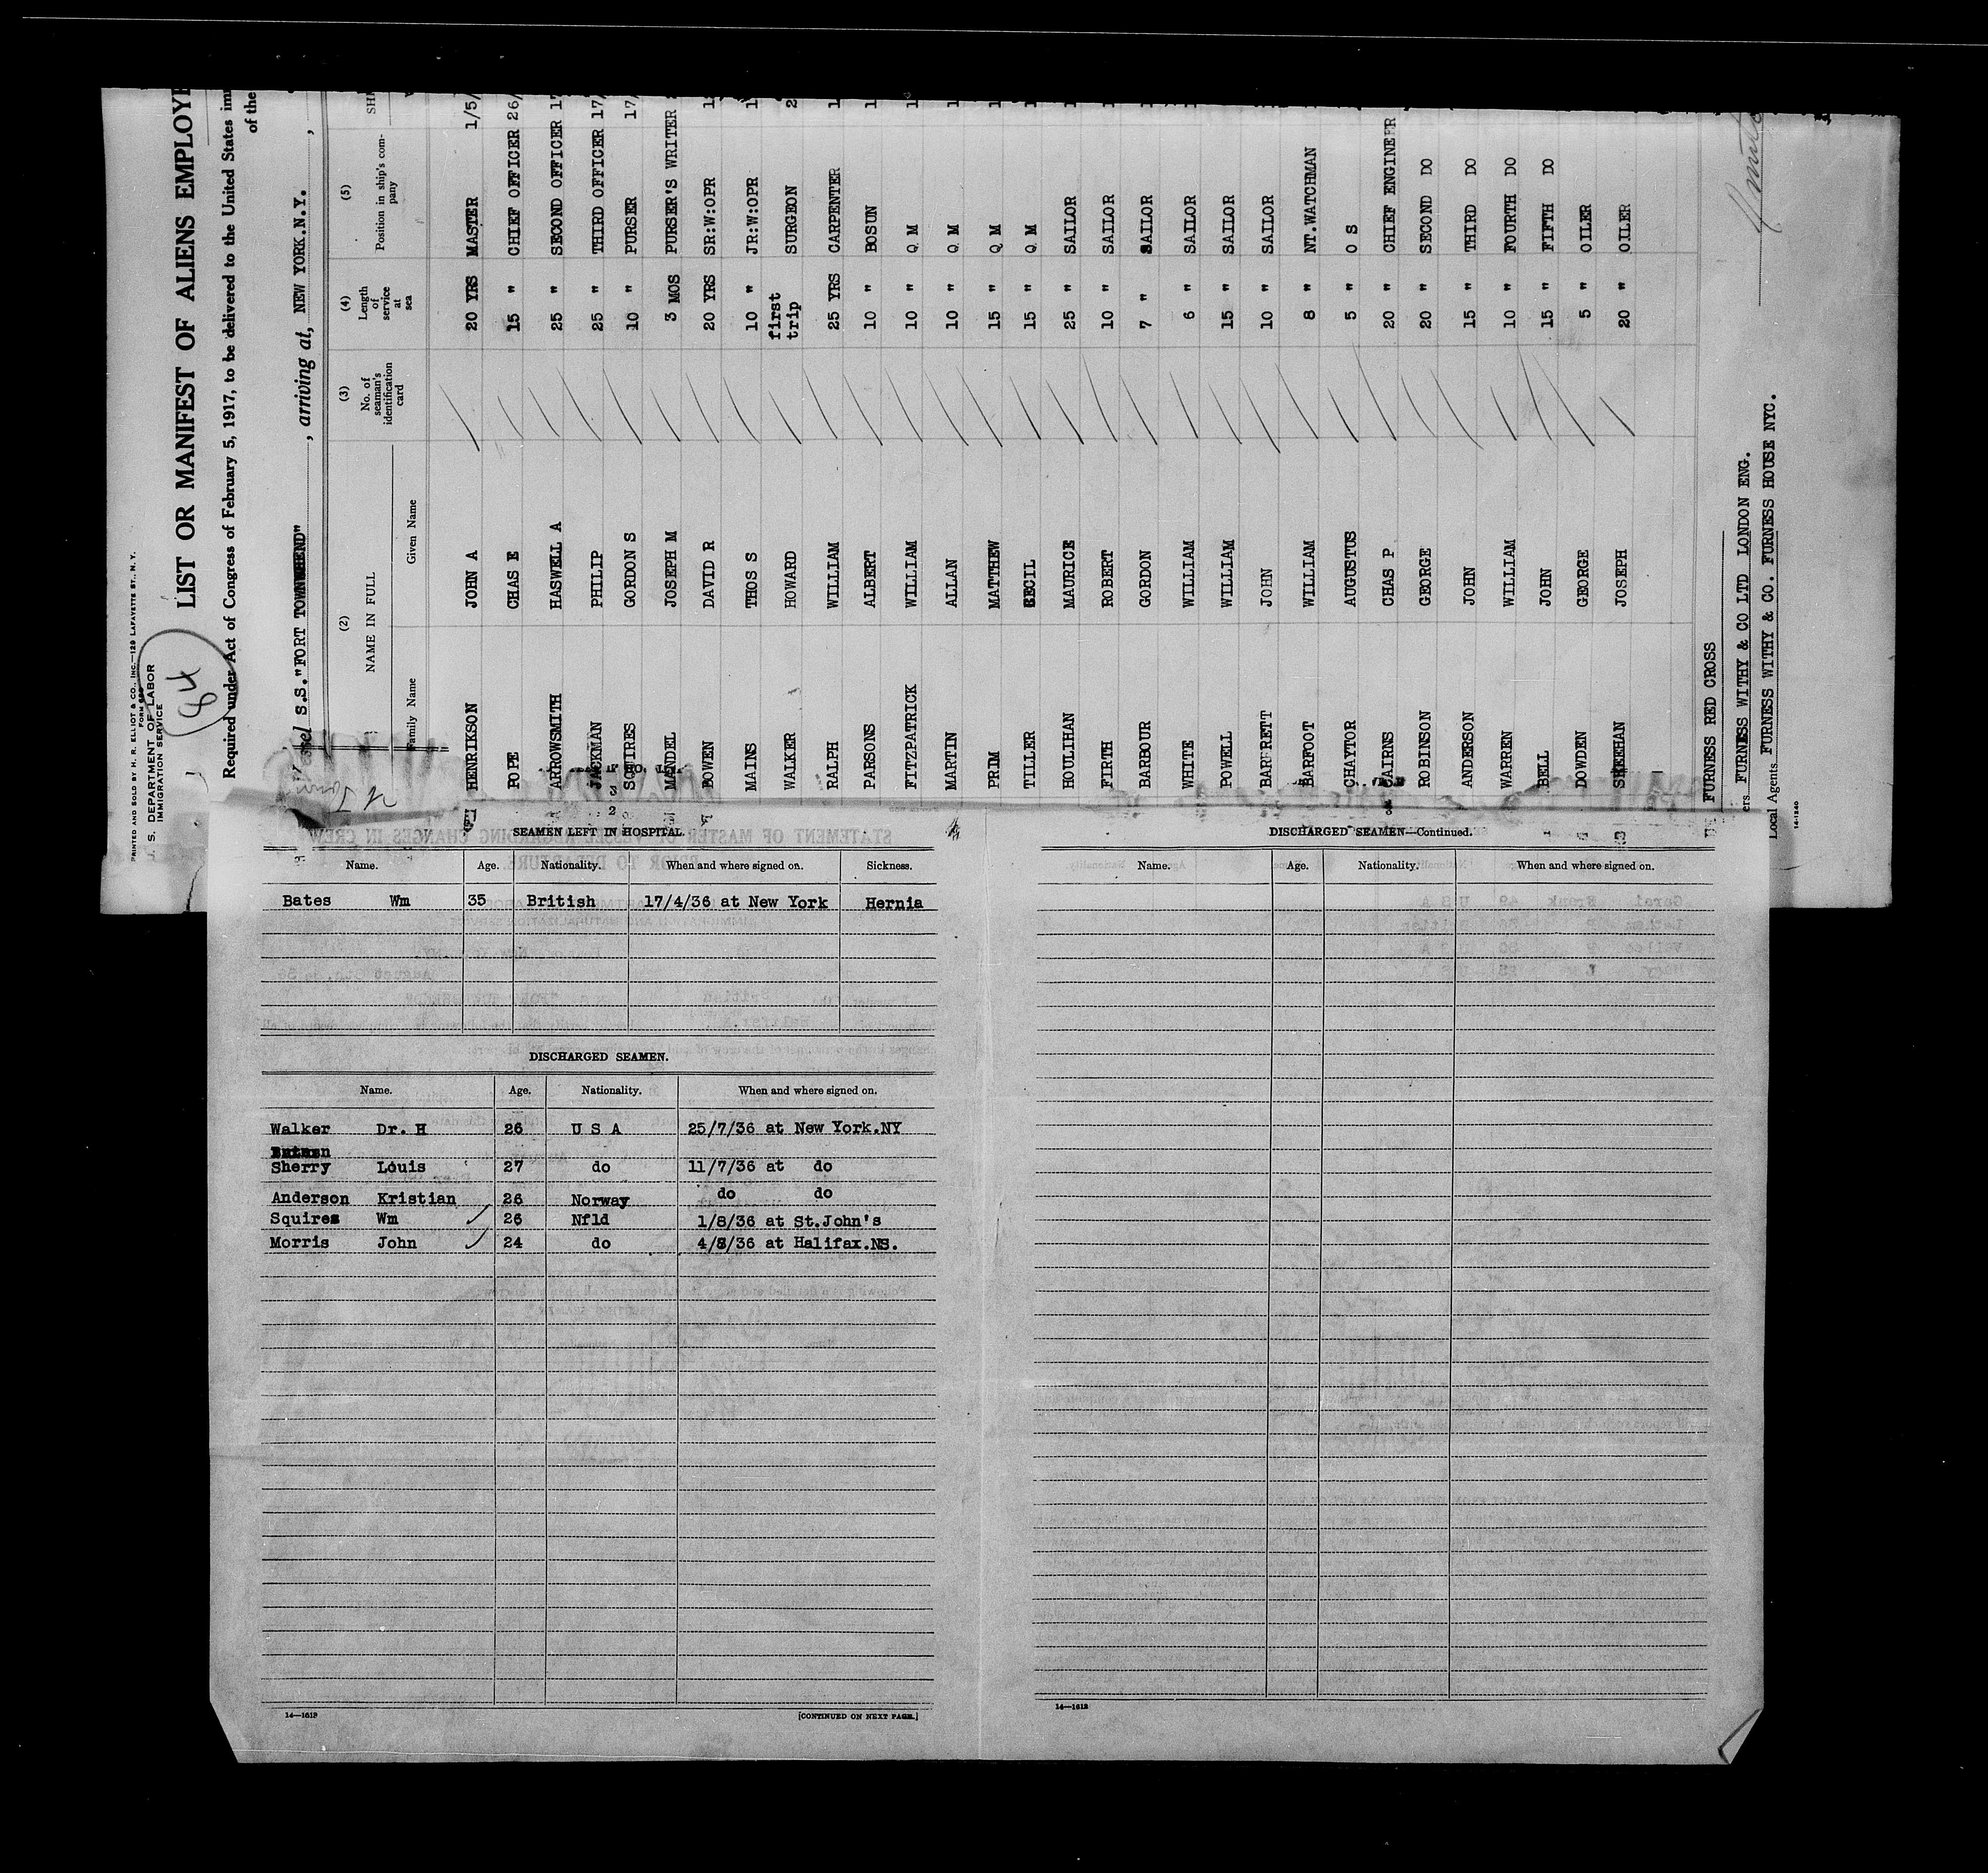 PRINTED AND SOLD BY H. R. ELLIOT & CO., INC.—129 LAFAYETTE ST., N. Y.
S. DEPARTMENT OF LABOR
IMMIGRATION SERVICE
LIST OR MANIFEST OF ALIENS EMPLOYE
Required under Act of Congress of February 5, 1917, to be delivered to the United States
of the
Vessel S.S."FORT TOWNSHEND", arriving at, NEW YORK.N.Y.,
(2) (3) (4) (5)
NAME IN FULL No. of seaman's identification card Length of service at sea Position in ship's company
Family Name Given Name
HENRIKSON JOHN A 20 YRS MASTER 1/5/
POPE CHAS E 15 " CHIEF OFFICER 26/
ARROWSMITH HASWELL A 25 " SECOND OFFICER 17
JACKMAN PHILIP 25 " THIRD OFFICER 17/
SQUIRES GORDON S 10 " PURSER 17/
MANDEL JOSEPH M 3 MOS PURSER'S WRITER
BOWEN DAVID R 20 YRS SR:W:OPR 1
MAINS THOS S 10 " JR:W:OPR 1
WALKER HOWARD first trip SURGEON 2
RALPH WILLIAM 25 YRS CARPENTER 1
PARSONS ALBERT 10 " BOSUN 1
FITZPATRICK WILLIAM 10 " Q M 1
MARTIN ALLAN 10 " Q M 1
PRIM MATTHEW 15 " Q M 1
TILLER CECIL 15 " Q M 1
HOULIHAN MAURICE 25 " SAILOR
FIRTH ROBERT 10 " SAILOR
BARBOUR GORDON 7 " SAILOR
WHITE WILLIAM 6 " SAILOR
POWELL WILLIAM 15 " SAILOR
BARRETT JOHN 10 " SAILOR
BARFOOT WILLIAM 8 " NT.WATCHMAN
CHAYTOR AUGUSTUS 5 " O S
CAIRNS CHAS P 20 " CHIEF ENGINEER
ROBINSON GEORGE 20 " SECOND DO
ANDERSON JOHN 15 " THIRD DO
WARREN WILLIAM 10 " FOURTH DO
BELL JOHN 15 " FIFTH DO
DOWDEN GEORGE 5 " OILER
SHEEHAN JOSEPH 20 " OILER
FURNESS RED CROSS
ers. FURNESS WITHY & CO LTD LONDON ENG.
Local Agents. FURNESS WITHY & CO. FURNESS HOUSE NYC.
14-1240
SEAMEN LEFT IN HOSPITAL.
Name. Age. Nationality. When and where signed on. Sickness.
Bates Wm 35 British 17/4/36 at New York Hernia
DISCHARGED SEAMEN.
Name. Age. Nationality. When and where signed on.
Walker Dr. H 26 U S A 25/7/36 at New York.NY
Sherry Louis 27 do 11/7/36 at do
Anderson Kristian 26 Norway do do
Squires Wm 26 Nfld 1/8/36 at St.John's
Morris John 24 do 4/8/36 at Halifax.NS.
14—1613
[CONTINUED ON NEXT PAGE.]
DISCHARGED SEAMEN—Continued.
Name. Age. Nationality. When and where signed on.
14—1613